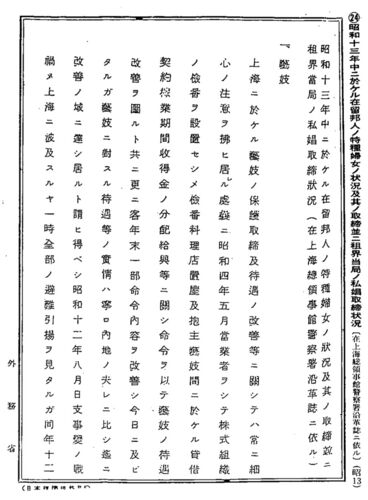 ㉔昭和十三年中ニ於ケル在留邦人ノ特種婦女ノ状況及其ノ取締並ニ租界当局ノ私娼取締状況（在上海総領事館警察署沿革誌ニ依ル）（昭13）
昭和十三年中ニ於ケル在留邦人ノ特種婦女ノ状況及其ノ取締並ニ
租界當局ノ私娼取締状況（在上海總領事館警察署沿革誌ニ依ル）
一、藝妓
上海ニ於ケル藝妓ノ保護取締及待遇ノ改善等ニ關シテハ常ニ細
心ノ注意ヲ拂ヒ居ル處曩ニ昭和四年五月當業者ヲシテ株式組織
ノ檢番ヲ設置セシメ檢番料理店置屋及抱主藝妓間ニ於ケル貸借
契約稼業期間收得金ノ分配給與等ニ關シ命令ヲ以テ藝妓ノ待遇
改善ヲ圖ルト共ニ更ニ客年末一部命令內容ヲ改善シ今日ニ及ビ
タルガ藝妓ニ對スル待遇等ノ實情ハ寧ロ內地ノ夫レニ比シ遙ニ
改善ノ域ニ達シ居ルト謂ヒ得ベシ昭和十二年八月日支事變ノ戰
禍ノ上海ニ波及スルヤ一時全部ノ避難引揚ヲ見タルガ同年十二
外務省